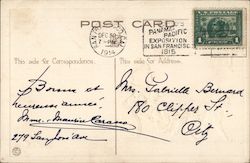 POST CARD
DEC 30
7-PM
1914
PANAMA
PACIFIC
EXPOSITION
IN SAN FRANCISCO
1915
This side for Correspondence.
This side for Address.
Bonne et
heureuse année
Mme. Maurice
279
Mrs. Gabrielle Bernard
180 Clipper St.
City